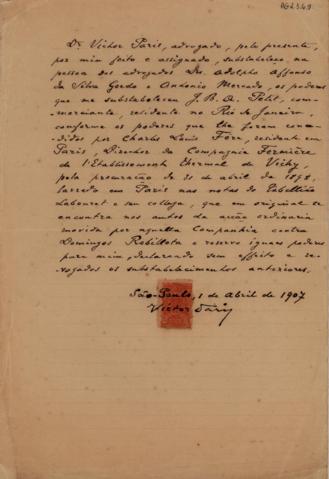 Dr. Victor Paris, advogado, pelo presente,
por mim feito e assignado, substabeleço na
pessoa dos advogados Drs. Adolpho Affonso
da Silva Gordo e Antonio Mercado, os poderes
que me substabeleceu J. B. A. Petit, com-
merciante, residente no Rio de Janeiro,
conforme os poderes que lhe foram conce-
didos por Charles Louis Fere, residente em
Paris, Director da Compagnie Fermière
de l'Etablissement thermal de Vichy,
pela procuração de 21 de abril de 1898,
lavrada em Paris nas notas do Tabellião
Labouret e seu collega, que em original se
encontra nos autos da acção ordinaria
movida por aquella Companhia contra
Domingos Rebillota e reservo iguaes poderes
para mim, declarando sem effeito e re-
vogados os substabelecimentos anteriores.
São-Paulo, 1 de Abril de 1907
Victor Paris